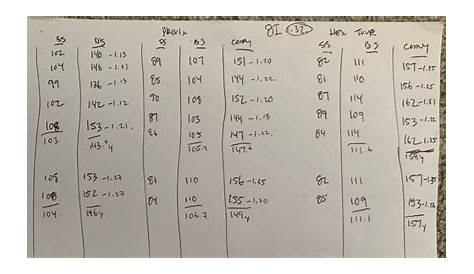 PROVIX 8I .32 HEX TOUR
SS DIS SS BS COMY SS BS COMY
102 140 -1.13 89 107 151 -1.20 82 111 157 -1.35
104 146 -1.21 85 104 144 -1.22 81 110 156 -1.25
99 136 -1.13 90 108 152 -1.20 87 114 162 -1.31
102 142 -1.12 87 103 144 -1.18 89 109 153 -1.22
108 153 -1.21 86 105 147 -1.22 84 114 162 -1.25
103 143.4y 105.4 147.6 111.6 158y
108 153 -1.27 81 110 156 -1.25 82 111 157 -1.35
108 152 -1.27 84 110 155 -1.20 85 109 153 -1.26
104. 146y 106.7 149y 111.1 157y